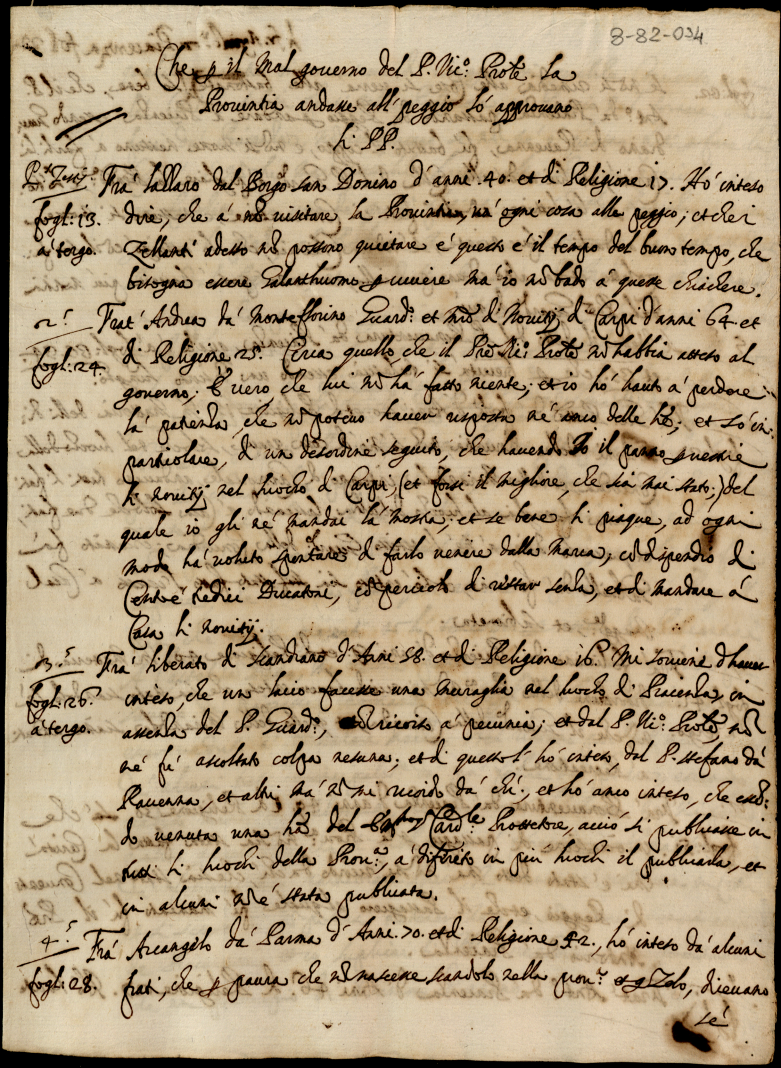 8-82-034
Che p il mal governo del P. Vic.º Prõle la
Provintia andasse all peggio lo approvano
li PP.
Fra lallaro dal Borgo san Donino d'anni 40. et di Religione 17. Hó inteso
fogl: 13. dire, che á nõ visitare la Provintia, va ogni cosa alla peggio; et che i
á tergo. Zellanti adesso nõ possono quietare é questo é il tempo del buon tempo, che
bisogna essere Galanthuomo p vivere má io nõ bado á queste chiachere.
2.º Frat' Andrea dá Montefiorino Guard.º et mrõ di Novitij di Carpi d'anni 64. et
fogl: 24. di Religione 25. Circa quello che il Prõ Vic.º Prõle nõ habbia atteso al
governo; É vero, che lui nõ há fatto niente; et io hó hauto á perdere
lá patienza, che nõ potevo haver risposta né anco delle lrẽ; et lo in
particolare, di un desordine seguito, che havendo Io il panno p vestire
li novitij nel luocho di Carpi, (et forse il migliore, che sia mai stato;) del
quale io gli né mandai lá mostra, et se bene li piaque, ad ogni
modo há voluto di farlo venire dalla Marca; cõ dispendio di
Cento é tredici Ducatoni, cõ pericolo di restar senza, et di mandare á
Casa li novitij.
3.º Fra liberato di Scandiano d'Anni 58. et di Religione 16. Mi soviene d'haver
fogl: 26. inteso, che un laico facesse una Muraglia nel luocho di Piacenza, in
á tergo. assenza del P. Guard.º, cõ ricorso á pecunia; et dal P. Vic.º Prõle nõ
né fú ascoltato colpa nesuna; et di questo l'hó inteso, dal P. stefano dá
Ravenna, et altri má nõ mi ricordo dá chi; et hó anco inteso, che essẽ-
do venuta una lrã del Card.le Protettore, acció si publicasse in
tutti li luochi della Prov.ª, á diferito in piú luochi il publicarla, et
in alcuni nõ é stata publicata.
4.º Fra Arcangelo dá Parma d'Anni 70. et di Religione 42., hó inteso dá alcuni
fogl: 28. frati, che p paura che nõ nascesse scandolo nella prov.ª et p Zelo, dicevano
sé